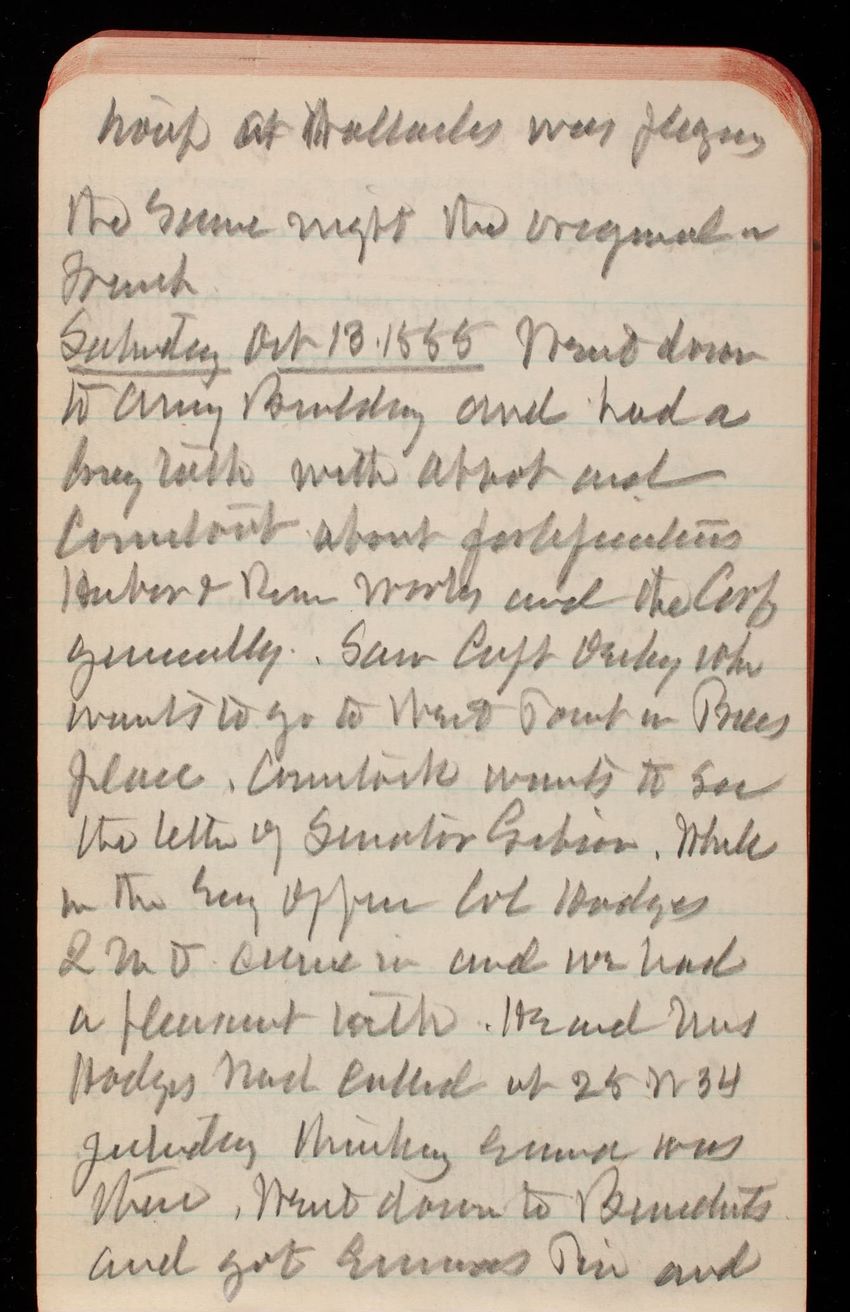 troup at Wallacks was playing
the same night the original in
French
Saturday Oct 13. 1888 Went down
to Army Building and had a
long talk with Abbot and
Comstock about fortifications
Harbor & River works and the Corps
generally. Saw Capt Derby who
wants to go to West Point in
place. Comstock wants to see
the letter of Senator Gibson. While
in the Eng Office Col Hodges
Q M D. came in and we had
a pleasant talk. He and Mrs
Hodges had called at 25 W 34
yesterday thinking Emma was
there. Went down to Benedicts
and got Emmas Pin and